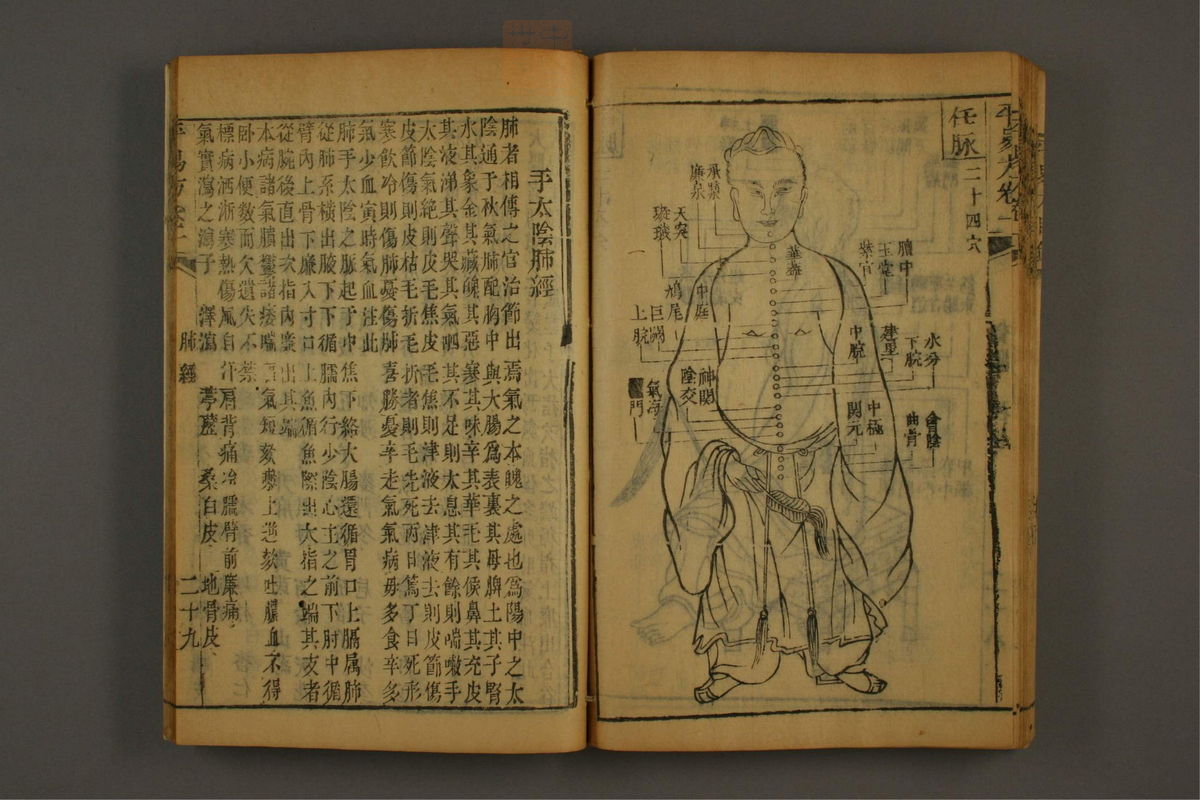 任脉二十四穴
承漿
廉泉
天突
璇璣
華蓋
膻中
玉堂
紫宮
中庭
鳩尾
巨闕
上脘
中脘
建里
水分
下脘
神闕
陰交
氣海
門
關元
中極
會陰
曲骨
手太陰肺經
肺者相傅之官治節出焉氣之本魄之處也為陽中之太
陰通于秋氣肺配胸中與大腸為表裏其母脾土其子腎
水其象金其藏魄其惡寒其味辛其華毛其候鼻其充皮
其液涕其聲哭其氣呬其不足則太息其有餘則喘嗽手
太陰氣絕則皮毛焦皮毛焦則津液去津液去則皮節傷
皮節傷則皮枯毛折毛折者則毛先死丙日篤丁日死形
寒飲冷則傷肺憂傷肺喜勝憂辛走氣氣病毋多食辛多
氣少血寅時氣血注此
肺手太陰之脉起于中焦下絡大腸還循胃口上膈属肺
從肺系橫出腋下下循臑內行少陰心主之前下肘中循
臂內上骨下廉入寸口上魚循魚際出大指之端其支者
從腕後直出次指內廉出其端
本病諸氣膹鬱諸痿喘氣短欬嗽上逆欬吐膿血不得
卧小便數而欠遺失不禁
標病洒淅寒熱傷風自汗肩背痛冷臑臂前廉痛
氣實瀉之瀉子 澤瀉 葶藶 桑白皮 地骨皮
肺經
二十九